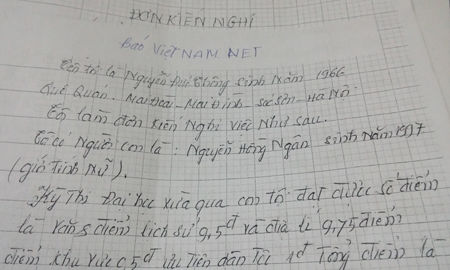 ĐƠN KIẾN NGHỊ
Báo VIỆT NAM NET
Tên tôi là Nguyễn Đại Thông sinh năm 1966
Quê Quán. Mai Đoài - Mai Đình - Sóc Sơn - Hà Nội
Tôi làm đơn kiến Nghị việc như sau.
Tôi có Người con là: Nguyễn Hồng Ngân sinh năm 1997
(giới tính Nữ).
Kỳ Thi Đại học vừa qua con tôi đạt được số điểm
là văn 8 điểm lịch sử 9,5đ và địa lí 9,75 điểm
điểm khu vực 0,5đ ưu Tiên dân Tộc 1đ Tổng điểm là